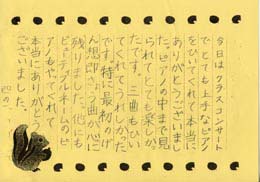 今日はクラスコンサート
でとても上手なピアノ
をひいてくれて本当に
ありがとうございまし
た。ピアノの中まで見
られてとても楽しか
ったです。三曲もひい
てくれてうれしかった
です。特に最初のげ
ん想即きょう曲が心に
残りました。他にも
ビューティフルネームのピ
アノもやってくれて
本当にありがとうご
ざいました。